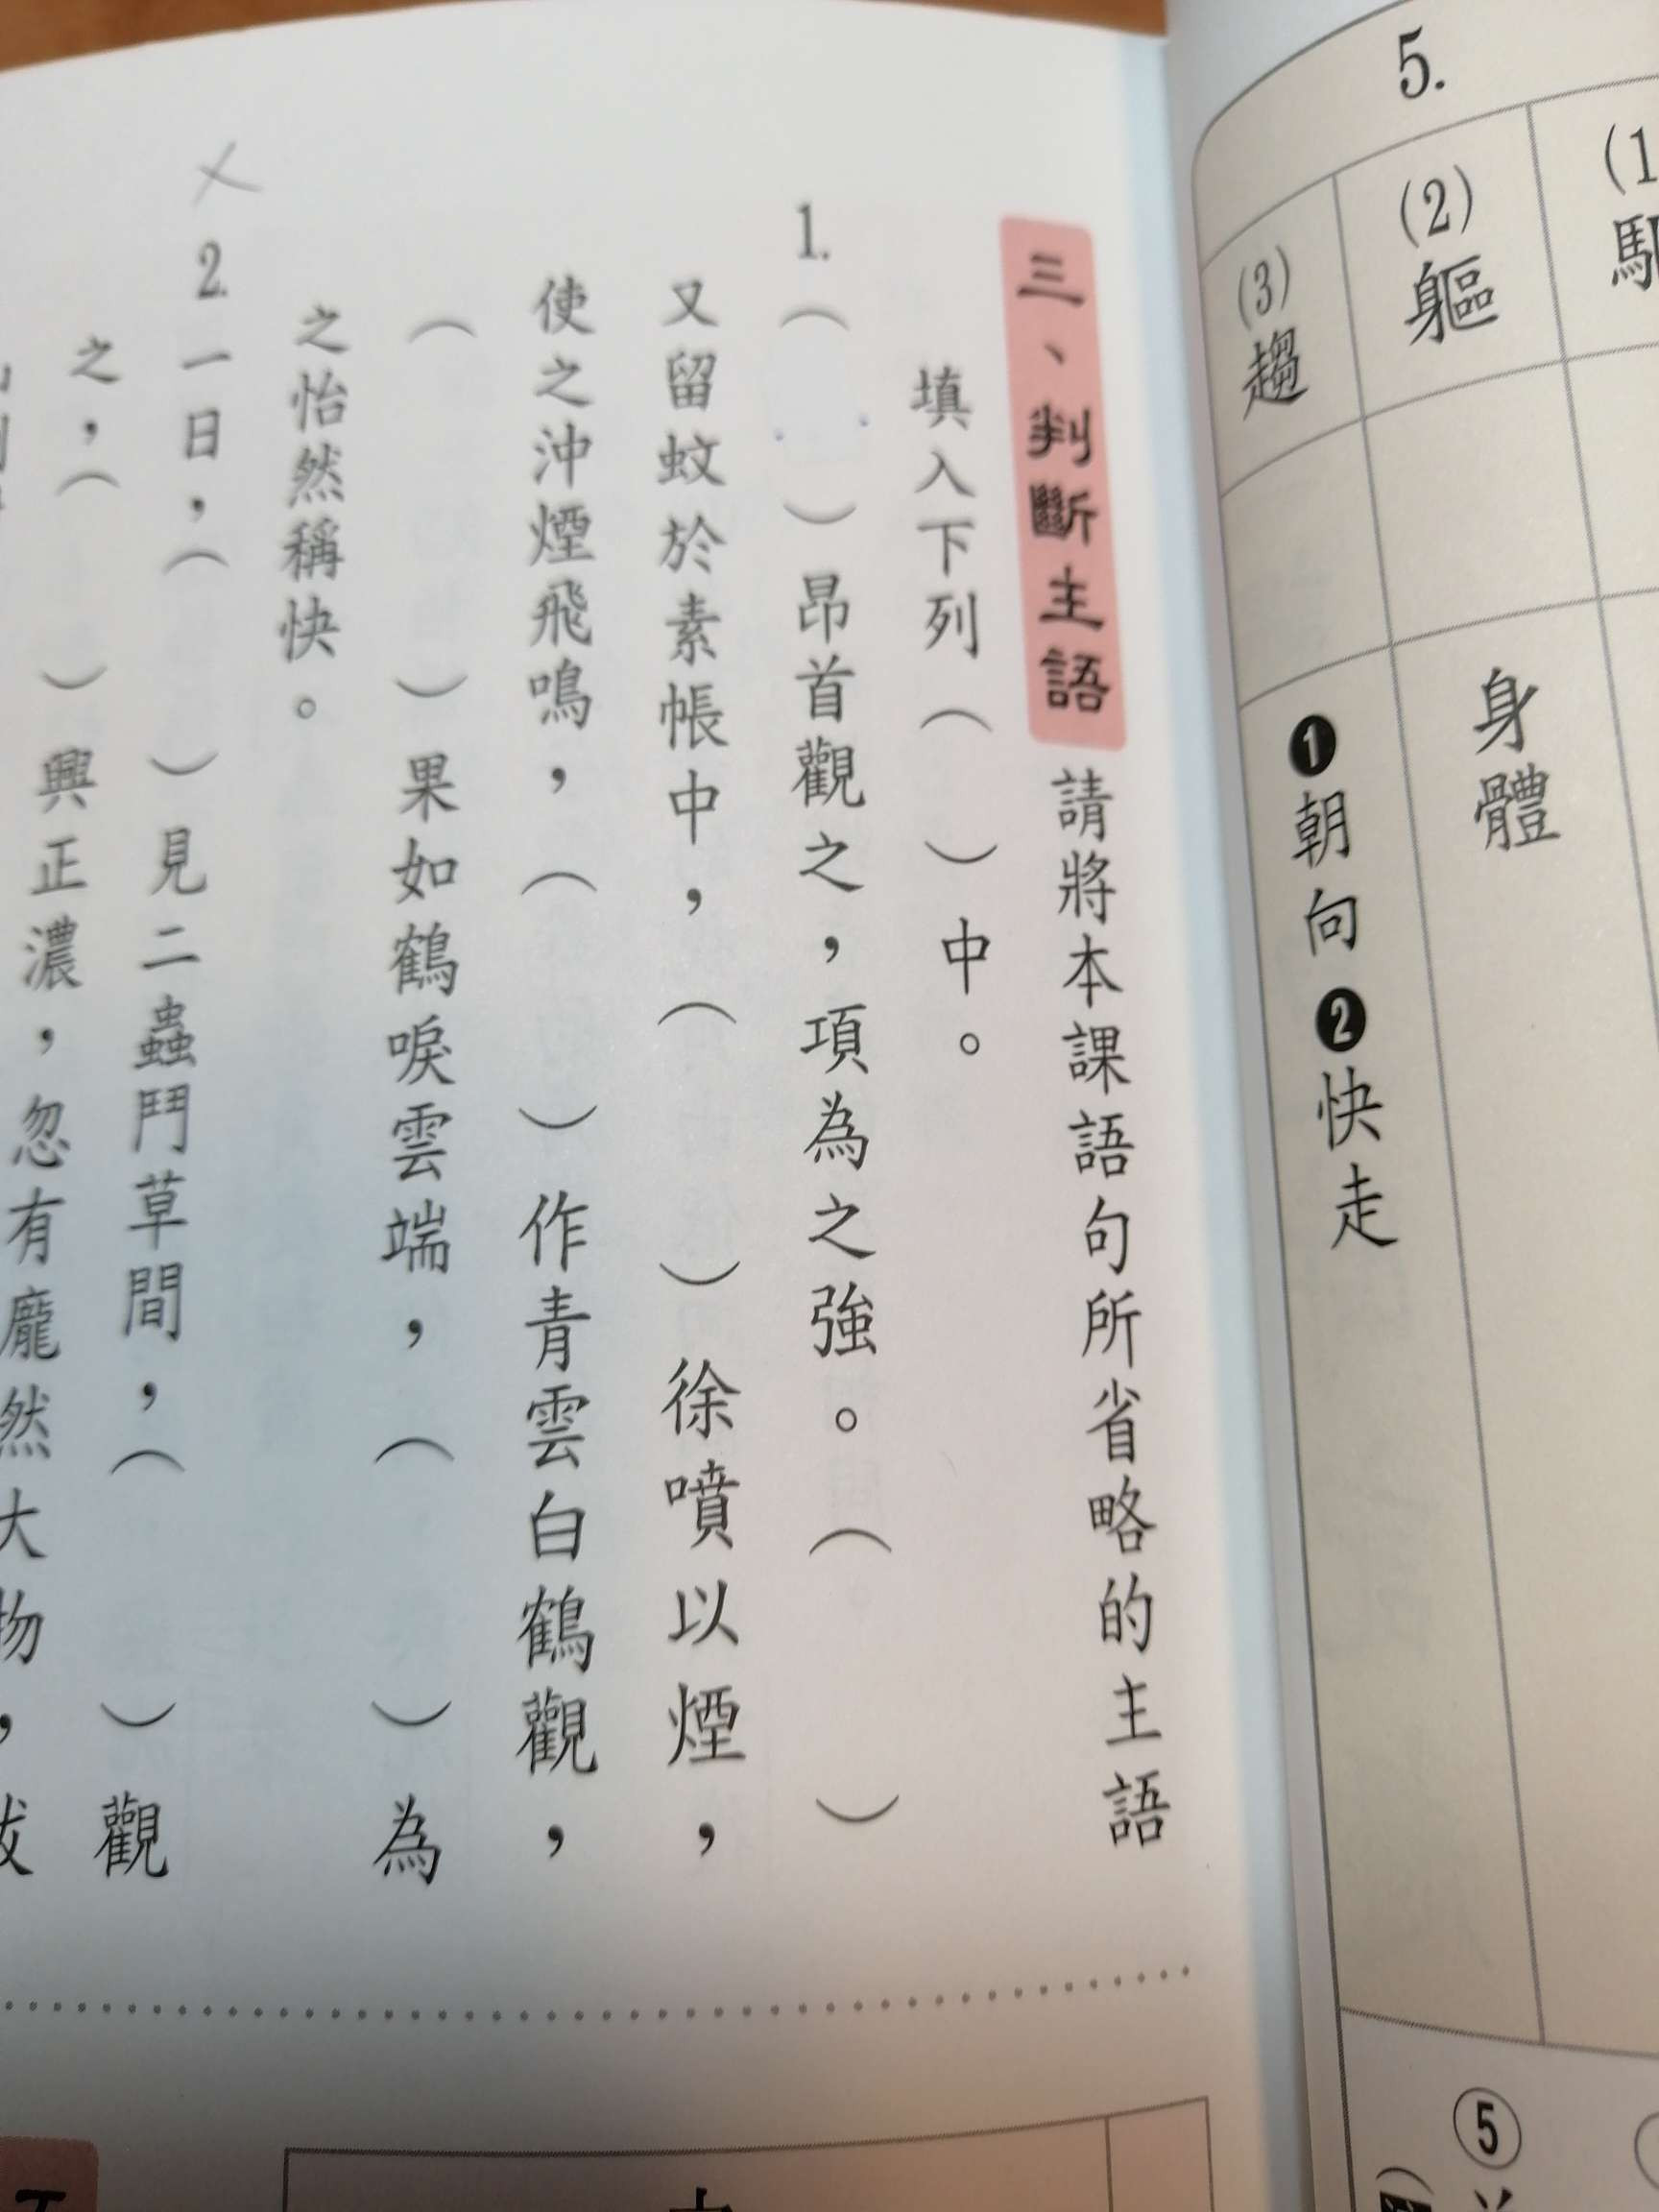 5.
(2)軀 身體
(3)趨 ❶朝向❷快走
⑤
三、判斷主語 請將本課語句所省略的主語
填入下列（ ）中。
1.（ ）昂首觀之，項為之強。（ ）
又留蚊於素帳中，（ ）徐噴以煙，
使之沖煙飛鳴，（ ）作青雲白鶴觀，
（ ）果如鶴唳雲端，（ ）為
之怡然稱快。
2.一日，（ ）見二蟲鬥草間，（ ）觀
之，（ ）興正濃，忽有龐然大物，